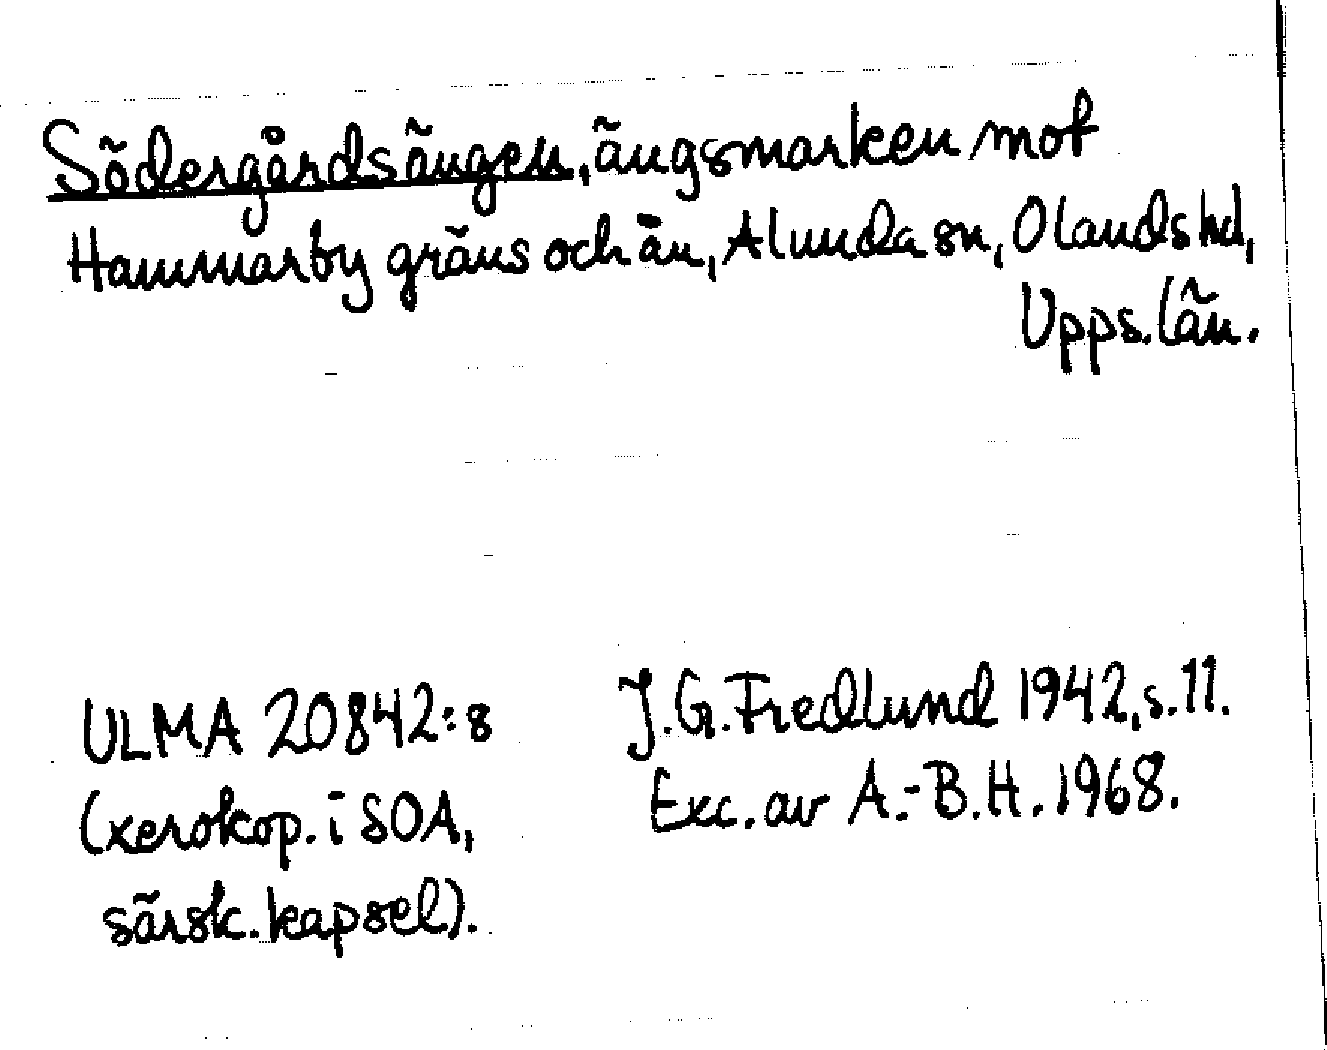 Södergårdsängen, ängsmarken mot
Hammarby gräns och ån, Alunda sn, Olands hd,
Upps. län.
ULMA 20842:8
(xerokop. i SOA,
särsk. kapsel).
J. G. Fredlund 1942, s. 11.
Exc. av A.-B. H. 1968.